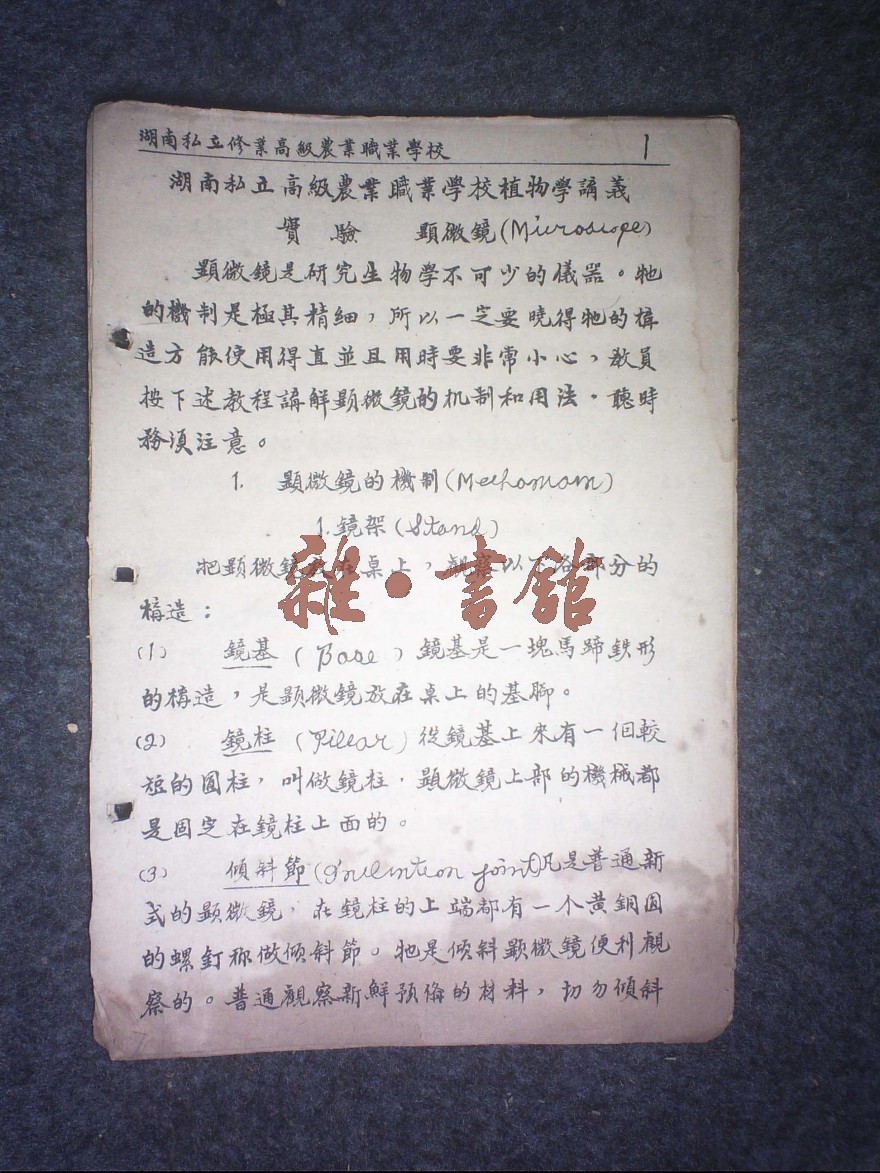 湖南私立修業高級農業職業學校 1
湖南私立高級農業職業學校植物學講義
實驗 顕微鏡(Microscope)
顕微鏡是研究生物學不可少的儀器。牠
的機制是極其精細,所以一定要曉得牠的構
造方能使用得直並且用時要非常小心,教員
按下述教程講解顕微鏡的机制和用法。聽時
務須注意。
1. 顕微鏡的機制(Mechanism)
1.鏡架(Stand)
把顕微鏡放在桌上,観察以下各部分的
雜·書館
構造:
(1) 鏡基(Base)鏡基是一塊馬蹄鉄形
的構造,是顕微鏡放在桌上的基脚。
(2) 鏡柱(Pillar)從鏡基上来有一個較
短的圓柱,叫做鏡柱,顕微鏡上部的機械都
是固定在鏡柱上面的。
(3) 傾斜節(Inclination joint)凡是普通新
式的顕微鏡,在鏡柱的上端都有一个黄銅圓
的螺釘称做傾斜節。牠是傾斜顕微鏡便利觀
察的。普通觀察新鮮預俻的材料,切勿傾斜